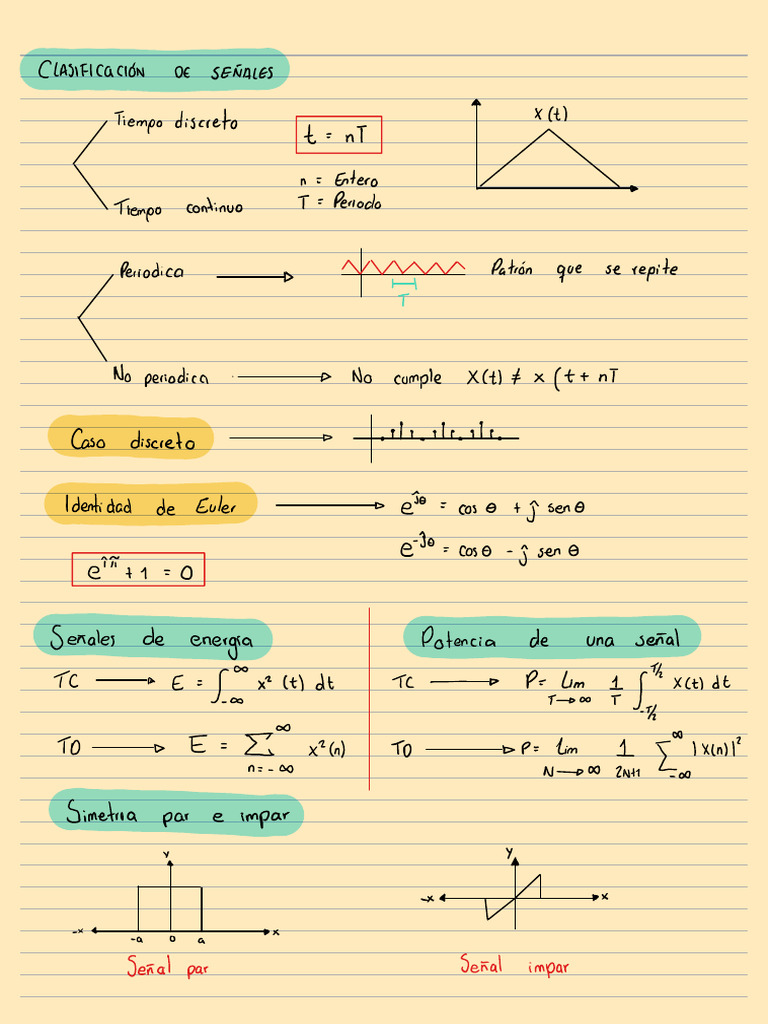 CLASIFICACIÓN DE SEÑALES
Tiempo discreto
t = nT
x(t)
n = Entero
T = Periodo
Tiempo continuo
Periodica
Patrón que se repite
T
No periodica
No cumple x(t) ≠ x (t + nT
Caso discreto
Identidad de Euler
e^ĵθ = cos θ + ĵ sen θ
e^-ĵθ = cos θ - ĵ sen θ
e^îñ + 1 = 0
Señales de energía
TC
E = ∫_-∞^∞ x² (t) dt
TD
E = ∑_n=-∞^∞ x²(n)
Potencia de una señal
TC
P = Lim_T→∞ 1/T ∫_-T/2^T/2 x(t) dt
TD
P = lim_N→∞ 1/2N+1 ∑_-∞^∞ |x(n)|²
Simetria par e impar
y
-x
-a
0
a
x
Señal par
y
-x
x
Señal impar